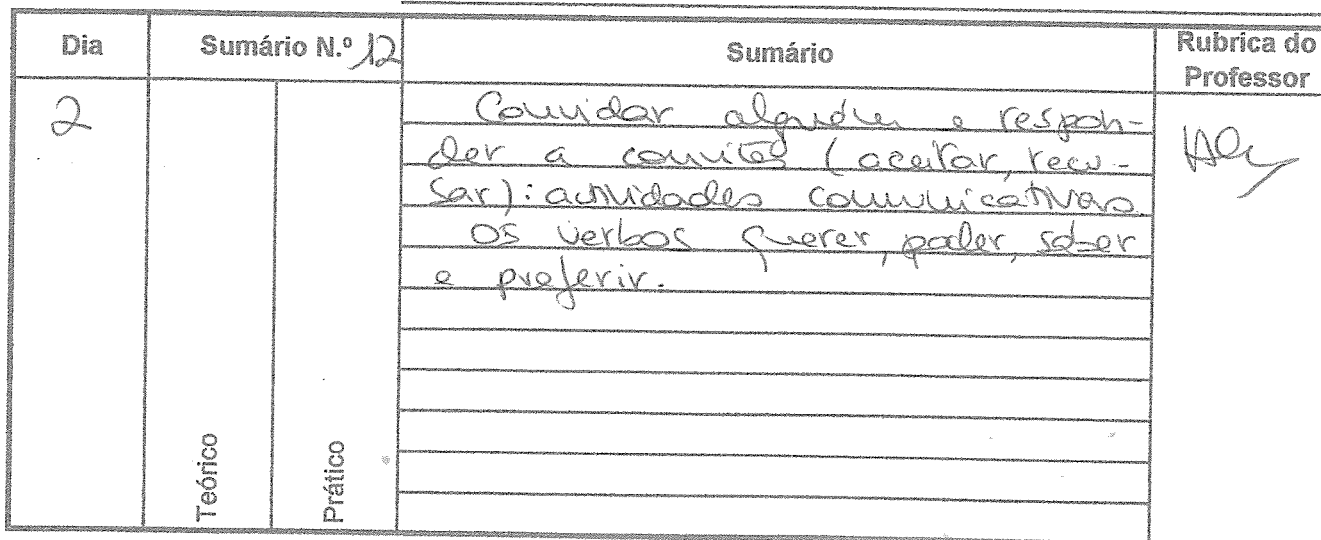 Dia
Sumário N.º 12
Sumário
Rubrica do
Professor
2
Convidar alguém e respon-
der a convites (aceitar, recu-
sar): actividades comunicativas.
Os verbos querer, poder, saber
e preferir.
Teórico
Prático